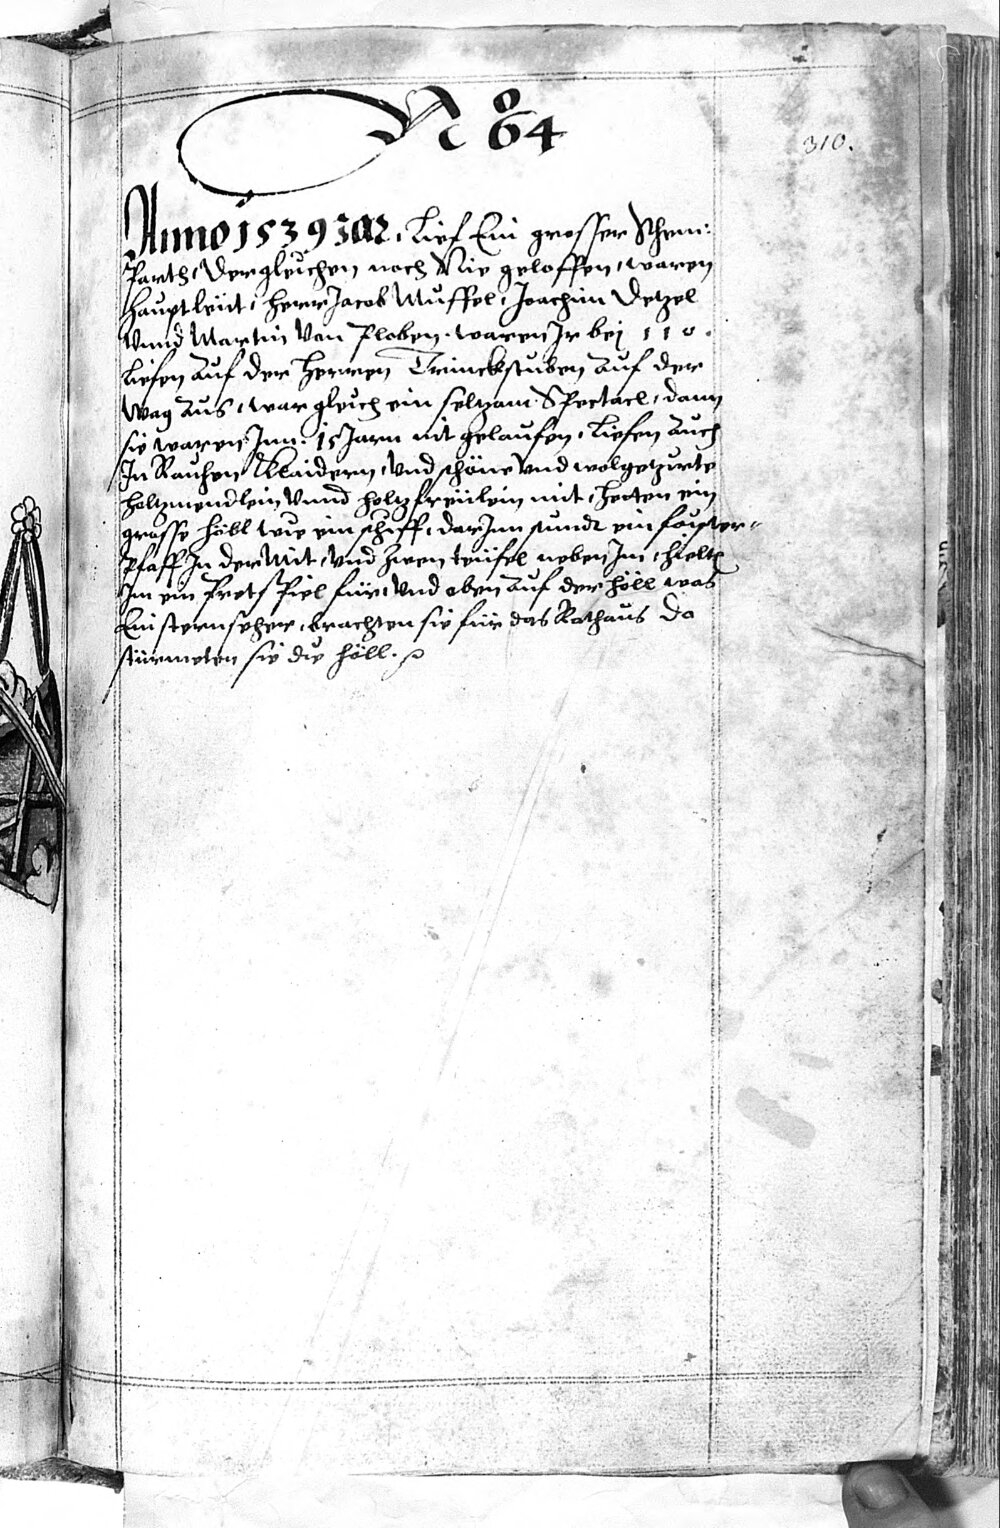 No 64
310.
Anno 1539 Jar, Lief Ein grosser Schem:
Parth, Dergleichen noch Nie geloffen, waren
Hauptleüt, Herr Jacob Muffel, Joachim Detzel
Vnnd Martin Von Ploben, waren Jr bej 110.
Liefen Auf der Herren Trinckstuben Auf der
Wag Aus, war gleich ein seltzam Spectacl, dann
sie waren Jnn 15 Jarn nit gelaufen, Liefen Auch
Jn Rauhen Klaidern, Vnd schöne Vnd wolgezirte
Holtzmendlein Vnnd holtzfreülein mit, Hetten ein
grosse Höll wie ein schiff, darJnn stundt ein
Pfaff Jn der Mit, Vnd Zwen teüfel neben Jm, Hielte
Jm ein Pret Spiel für, Vnd oben Auf der Höll was
Ein sternseher, brachten sie für das Rathaus Da
stürmeten sie die Höll.